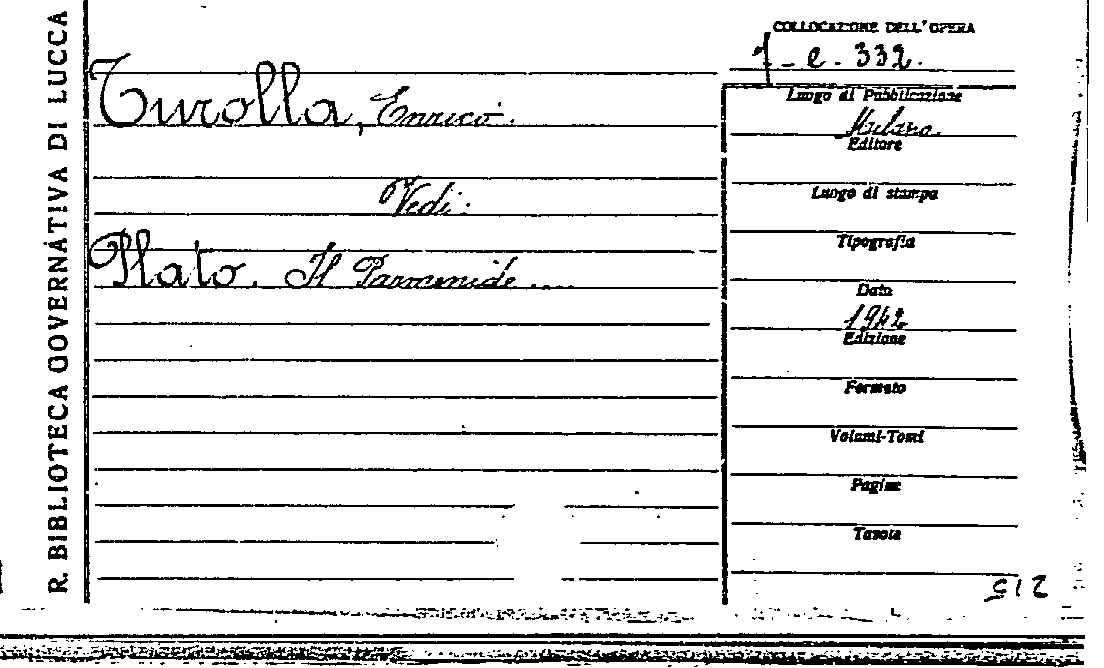 R. BIBLIOTECA GOVERNATIVA DI LUCCA
COLLOCAZIONE DELL'OPERA
- e - 332.
Turolla, Enrico.
Vedi:
Plato. Il Parmenide ....
Luogo di Pubblicazione
Milano.
Editore
Luogo di stampa
Tipografia
Data
1942
Edizione
Formato
Volumi-Tomi
Pagine
Tavole